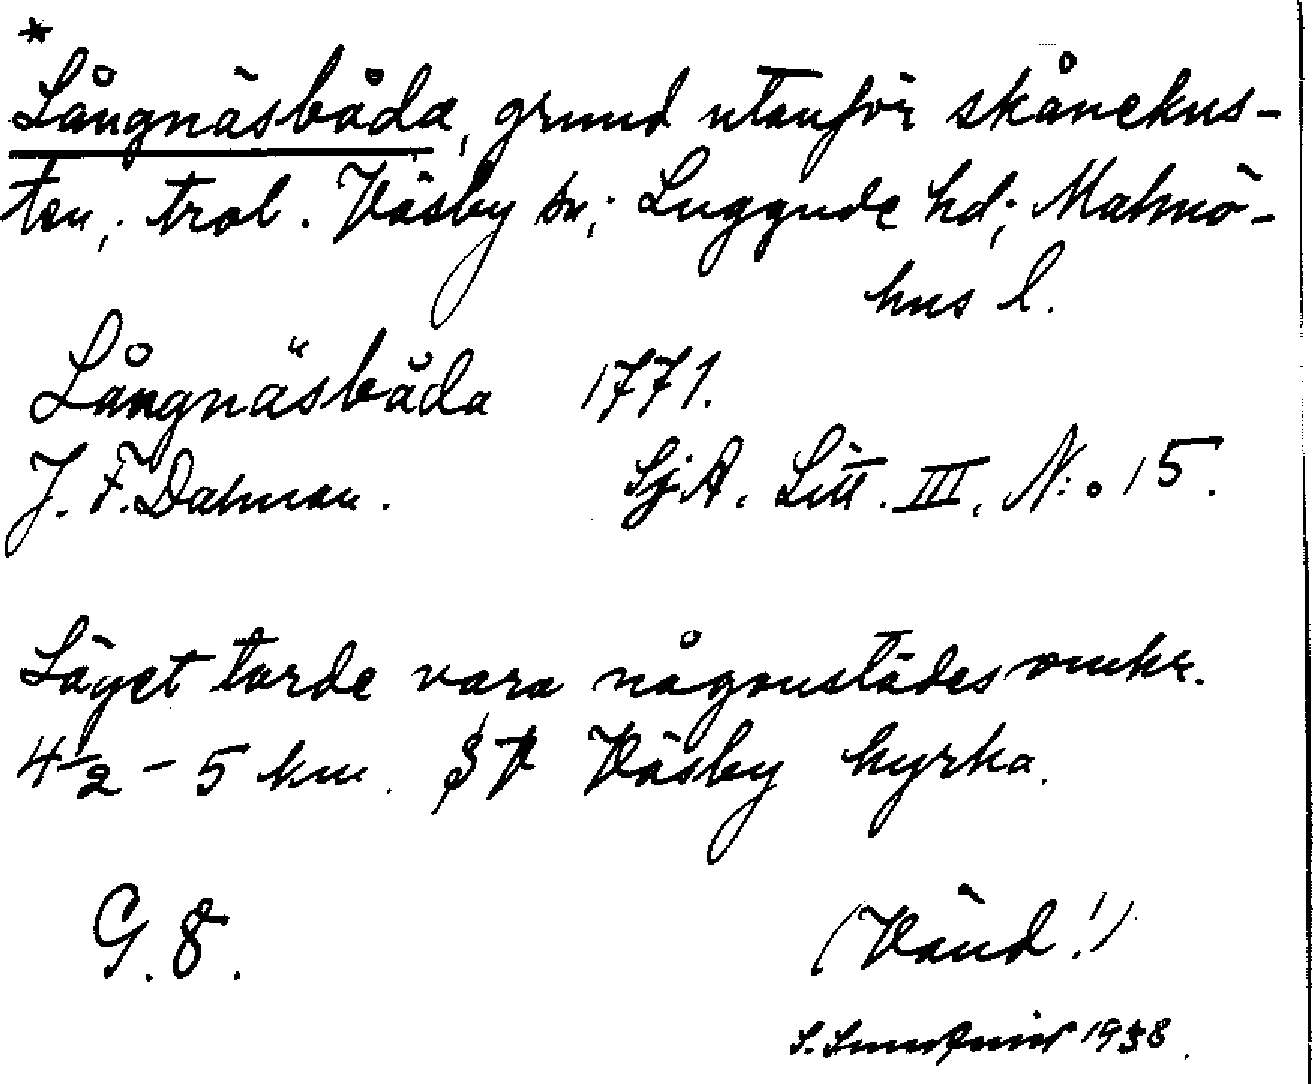 *
Långnäsbåda, grund utanför skånekus-
ten; trol. Väsby sn; Luggude hd; Malmö-
hus l.
Långnäsbåda 1771.
J. F. Dalman. SjA. Litt. III. N:o 15.
Läget torde vara någonstädes omkr.
4½ - 5 km. SV Väsby kyrka.
G. 8.
(Vänd!)
S. 1938.